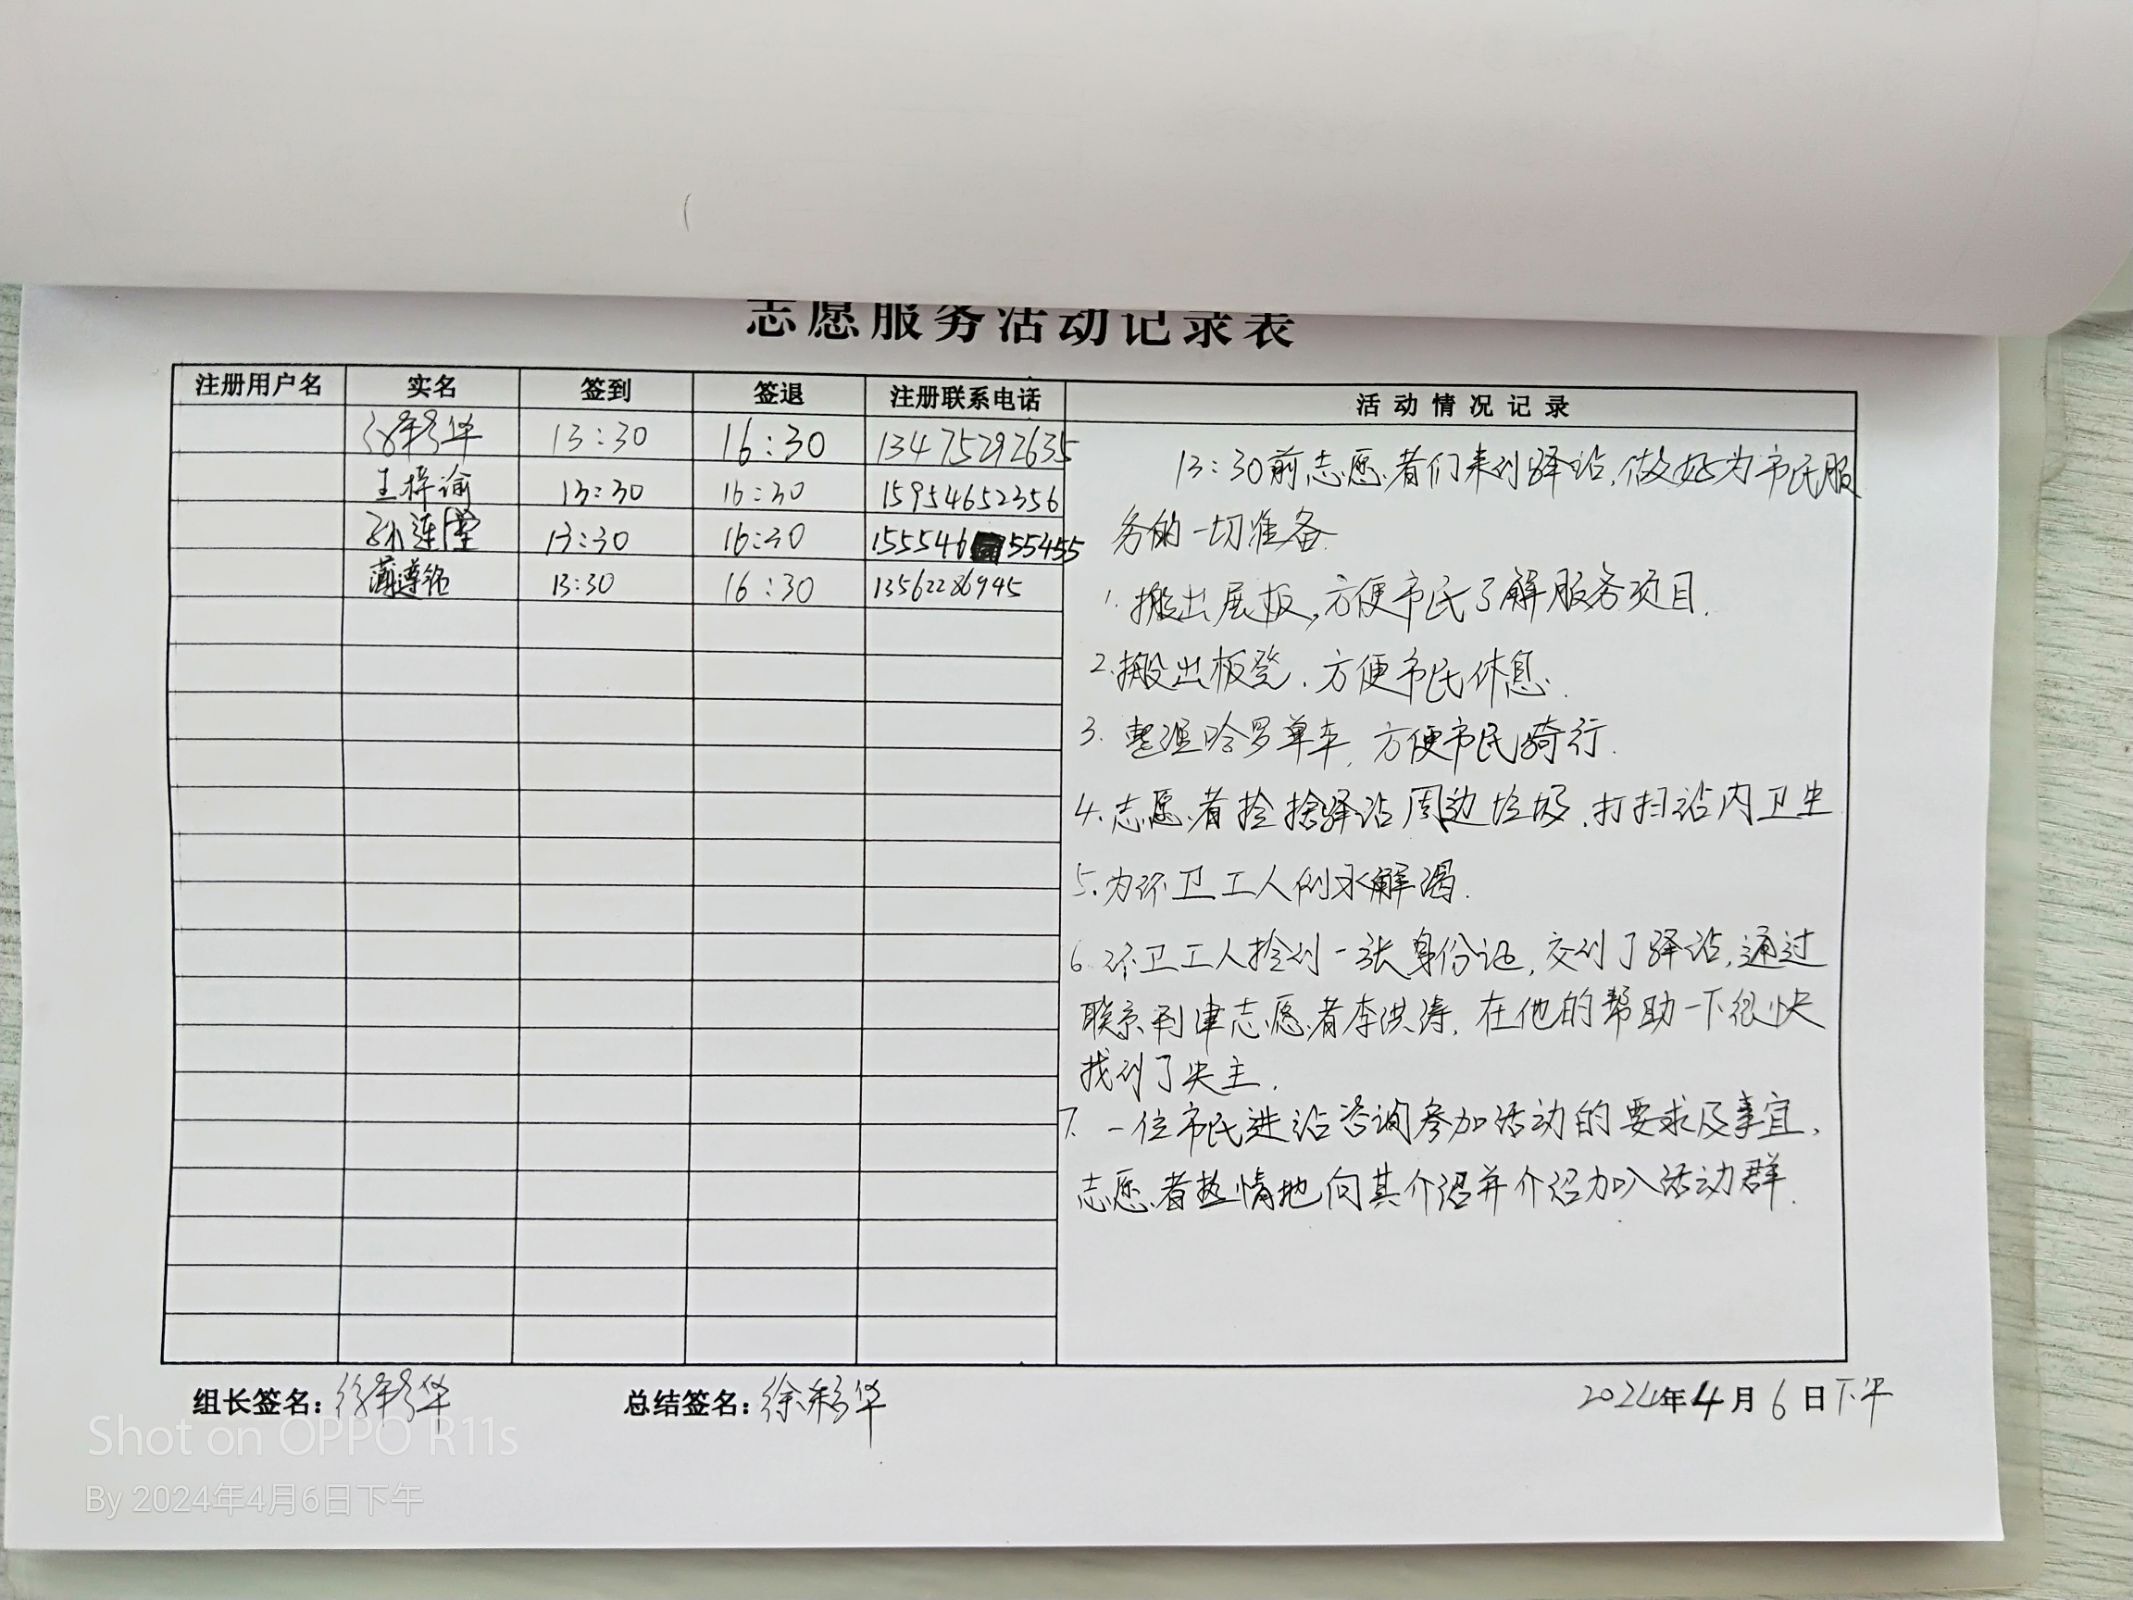 志愿服务活动记录表
注册用户名 实名 签到 签退 注册联系电话 活动情况记录
徐彩华 13:30 16:30 13475292635
王梓谕 13:30 16:30 15954652356
孙连堂 13:30 16:30 155546 55455
薄遵铭 13:30 16:30 13562286945
13:30前志愿者们来到驿站,做好为市民服
务的一切准备.
1.搬出展板,方便市民了解服务项目.
2.搬出板凳.方便市民休息.
3.整理哈罗单车,方便市民骑行.
4.志愿者捡拾驿站周边垃圾.打扫站内卫生
5.为环卫工人倒水解渴.
6.环卫工人捡到一张身份证,交到了驿站,通过
联系利津志愿者李洪涛.在他的帮助下很快
找到了失主.
7.一位市民进站咨询参加活动的要求及事宜,
志愿者热情地向其介绍并介绍加入活动群.
组长签名:徐彩华 总结签名:徐彩华 2024年4月6日下午
Shot on OPPO R11s
By 2024年4月6日下午